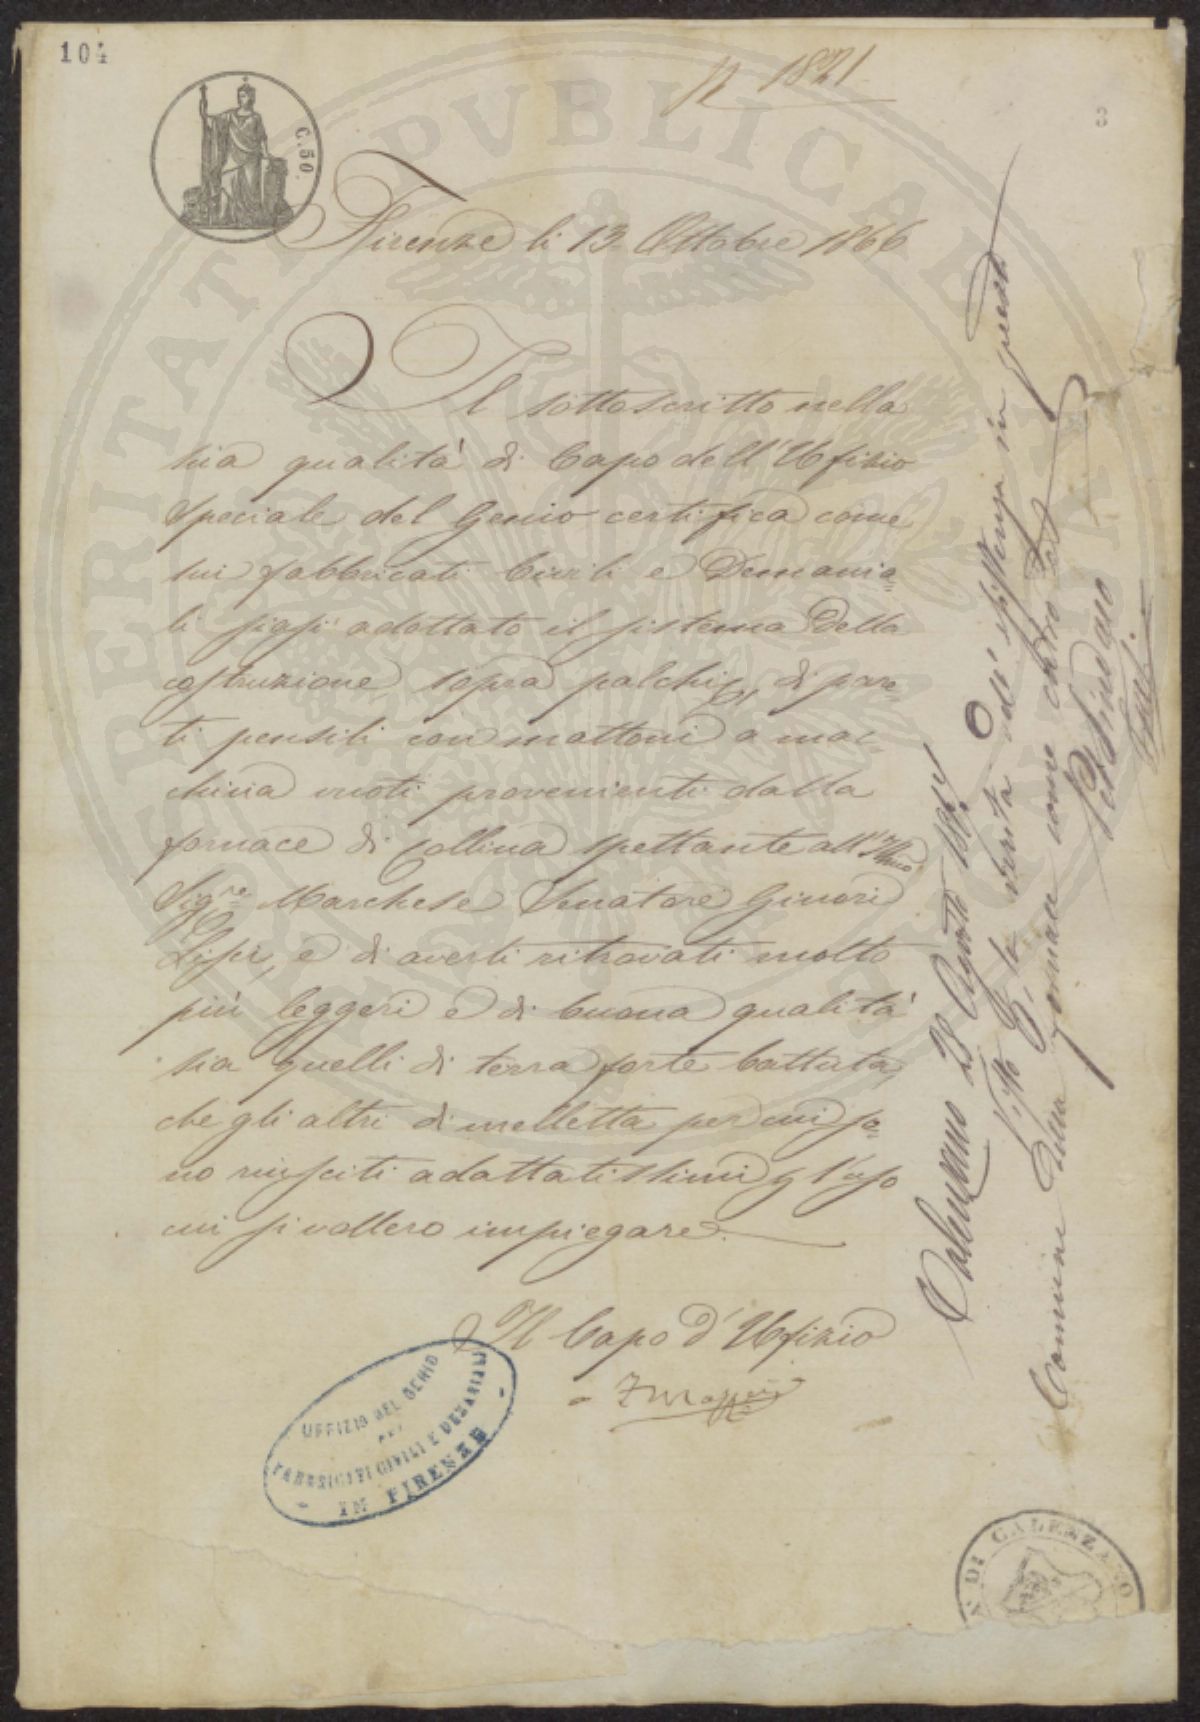 104
C. 50.
N 1821
3
Firenze li 13 Ottobre 1866
Il sottoscritto nella
sua qualità di Capo dell'Ufizio
Speciale del Genio certifica come
sui fabbricati Civili e Demania=
li siasi adottato il sistema della
costruzione, sopra palchi, di pare=
ti pensili con mattoni a mac=
china vuoti provenienti dalla
fornace di Collina spettante all'Illmo
Sigre Marchese Senatore Ginori
Lisci, e di averli ritrovati molto
più leggeri e di buona qualità
sia quelli di terra forte battuta,
che gli altri di melletta per cui so=
no riusciti adattatissimi p l'uso
cui si vollero impiegare.
Il Capo d'Ufizio
UFFIZIO DEL GENIO
PEI
FABBRICATI CIVILI E DEMANIALI
IN FIRENZE
Calenzano 28 Agosto
Visto p la verità ed esistenza in questo
Comune della fornace come contro
Il Sindaco
DI CALENZANO
PVBLICAE